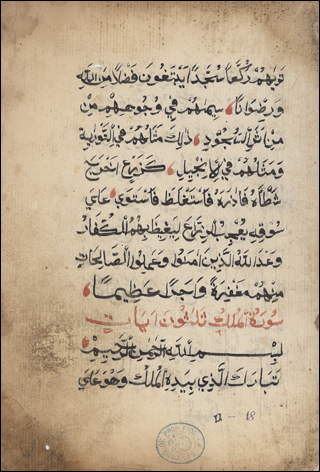 تريهم ركعا سجدا يبتغون فضلا من الله
ورضوانا سيماهم في وجوههم من
من اثر السجود ذلك مثلهم في التورية
ومثلهم في الانجيل كزرع اخرج
شطاه فازره فاستغلظ فاستوي علي
سوقه يعجب الزراع ليغيظ بهم الكفار
وعد الله الذين امنوا وعملوا الصالحات
منهم مغفرة واجرا عظيما
سورة الملك ثلاثون ايات
بسم الله الرحمن الرحيم
تبارك الذي بيده الملك وهو علي